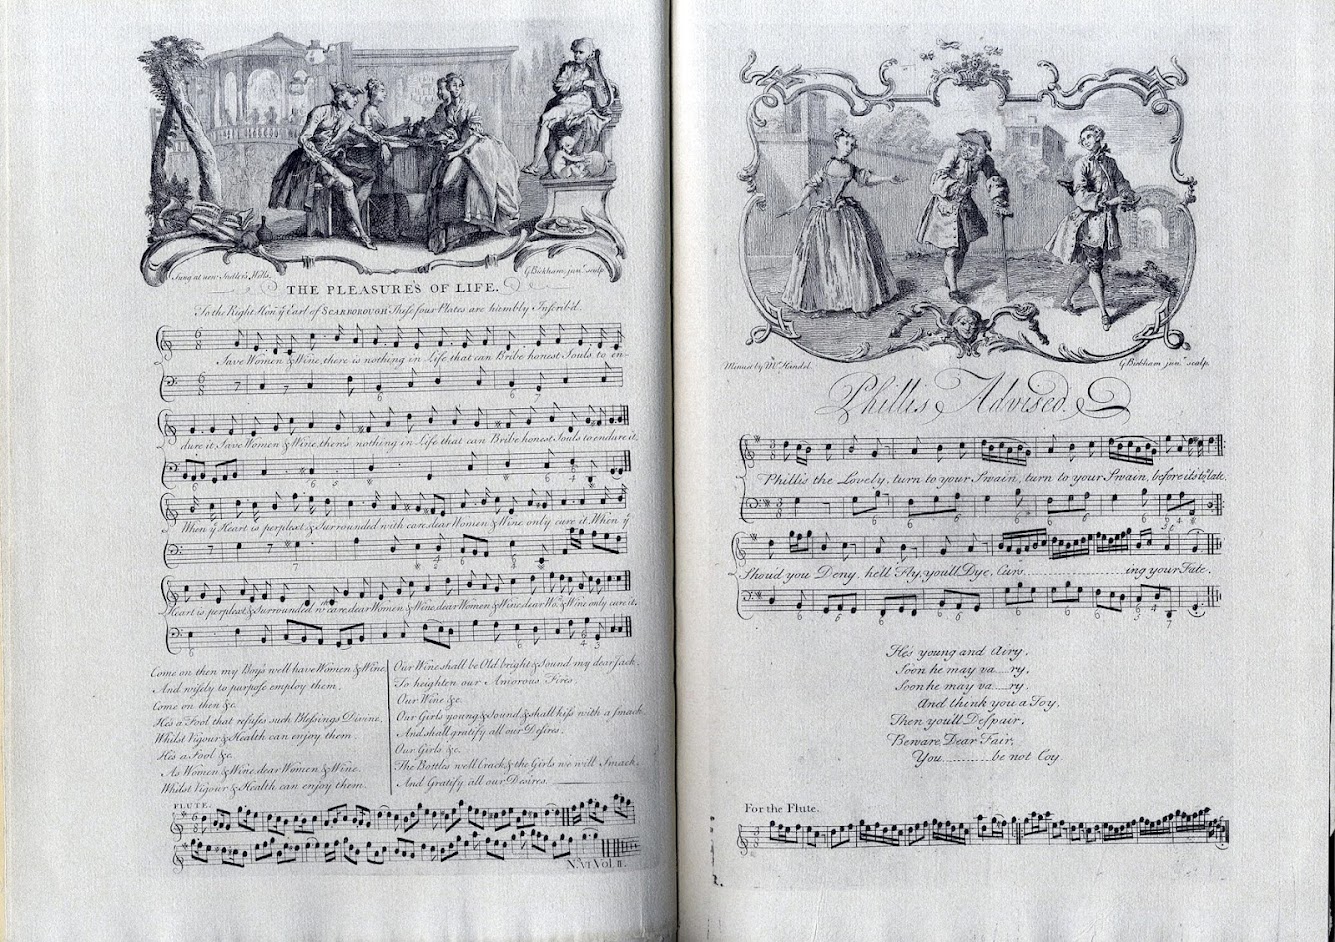 Sung at new Sadler's Wells.
G. Bickham jun.r sculp.
THE PLEASURE'S OF LIFE.
To the Right Hon. ye Earl of SCARBOROUGH These four Plates are humbly Inscrib'd.
Save Women & Wine, there is nothing in Life that can Bribe honest Souls to en-
dure it, Save Women & Wine, there's nothing in Life that can Bribe honest Souls to endure it.
When ye Heart is perplext & Surrounded with care, dear Women & Wine only cure it, When ye
Heart is perplext & Surrounded wth care, dear Women & Wine, dear Women & Wine, dear Wo. & Wine only cure it.
Come on then my Boys we'll have Women & Wine
And wisely to purpose employ them.
Come on then &c.
He's a Fool that refuses such Blessings Divine,
Whilst Vigour & Health can enjoy them.
He's a Fool &c.
As Women & Wine, dear Women & Wine.
Whilst Vigour & Health can enjoy them.
Our Wine shall be Old, bright & Sound my dear Jack,
To heighten our Amorous Fires
Our Wine &c.
Our Girls young & Sound & shall kiss with a Smack
And shall gratify all our Desires.
Our Girls &c.
The Bottles we'll Crack & the Girls we will Smack,
And Gratify all our Desires.
FLUTE.
N. VI Vol. II.
Minuet by Mr. Handel.
G. Bickham jun.r sculp.
Phillis Advised.
Phillis the Lovely, turn to your Swain, turn to your Swain, before its to late.
Shoud you Deny, he'll Fly, you'll Dye, Curs..........ing your Fate.
He's young and Airy,
Soon he may va....ry,
Soon he may va....ry,
And think you a Toy,
Then you'll Despair,
Beware Dear Fair,
You..........be not Coy
For the Flute.